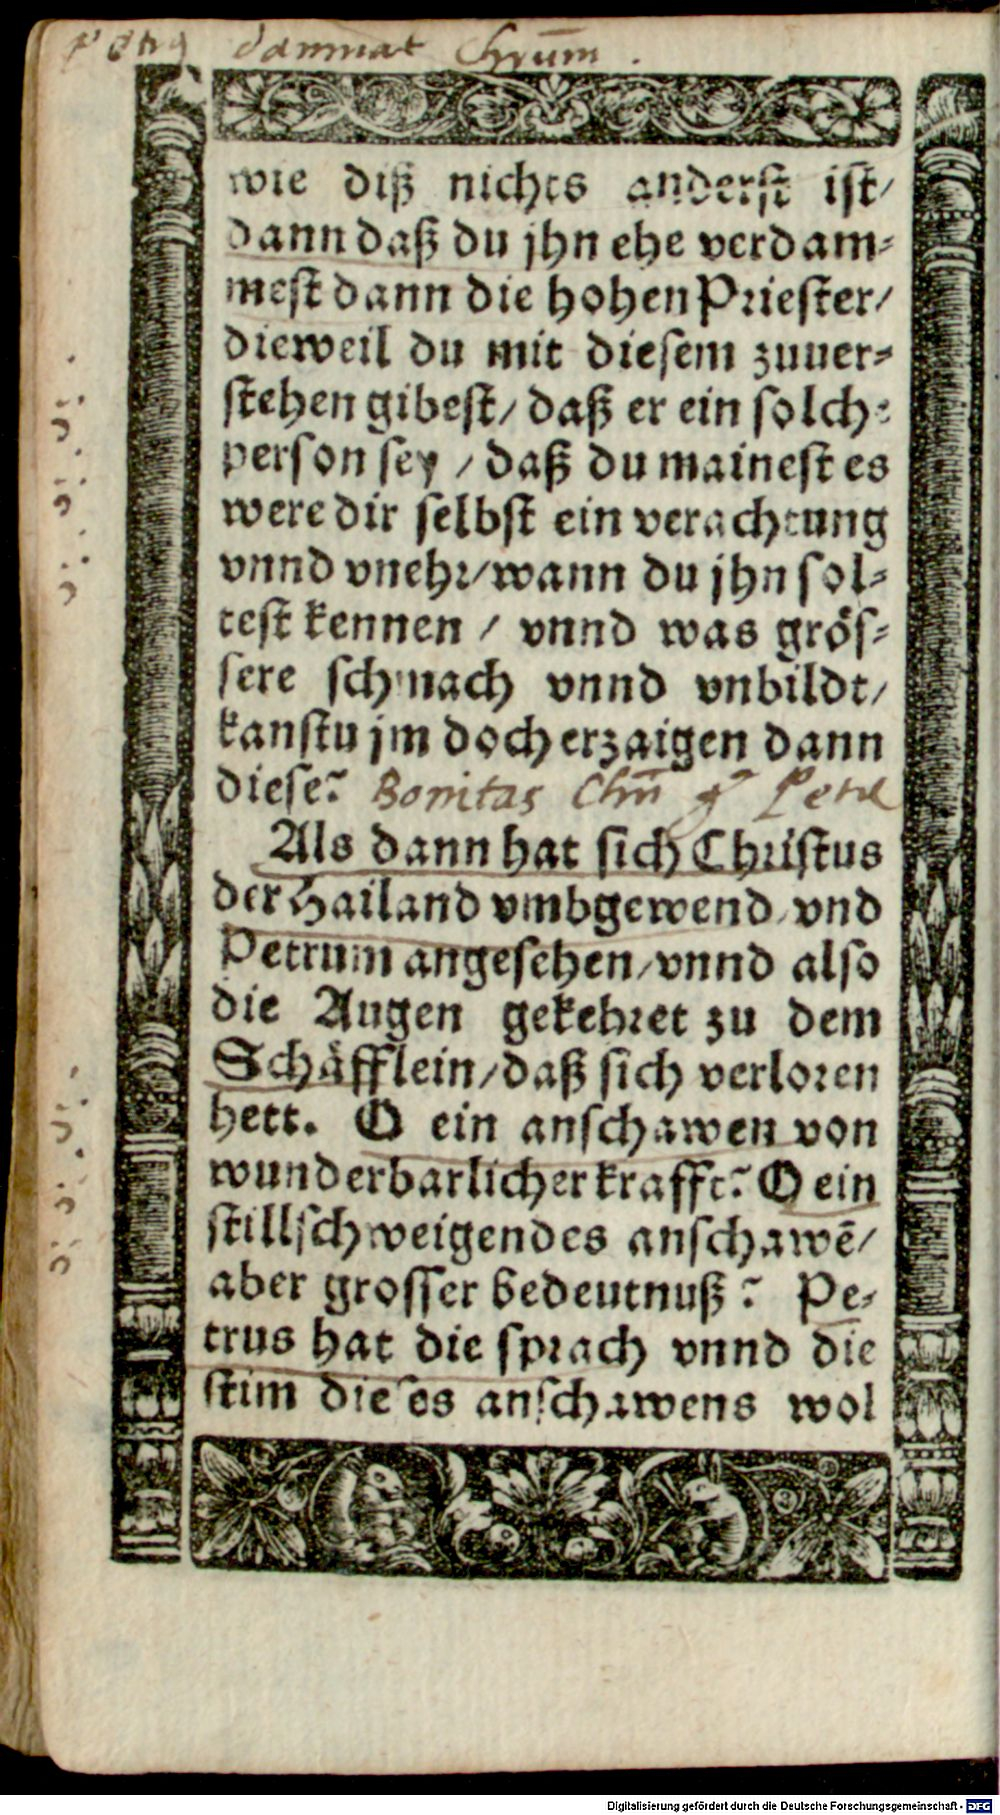 Petrꝰ damnat Chrūm .
wie diß nichts anderst ist/
dann daß du jhn ehe verdam⸗
mest dann die hohen Priester/
dieweil du mit diesem zuuer⸗
stehen gibest/ daß er ein solche
person sey / daß du mainest es
were dir selbst ein verachtung
vnnd vnehr/ wann du jhn sol⸗
test kennen / vnnd was grös⸗
sere schmach vnnd vnbildt/
kanstu jm doch erzaigen dann
diese? Bonitas Chri
Als dann hat sich Christus
der Hailand vmbgewend/ vnd
Petrum angesehen/ vnnd also
die Augen gekehret zu dem
Schäfflein/ daß sich verloren
hett. O ein anschawen von
wunderbarlicher krafft? O ein
stillschweigendes anschawē/
aber grosser bedeutnuß? Pe⸗
trus hat die sprach vnnd die
stim dieses anschawens wol
Digitalisierung gefördert durch die Deutsche Forschungsgemeinschaft - DFG